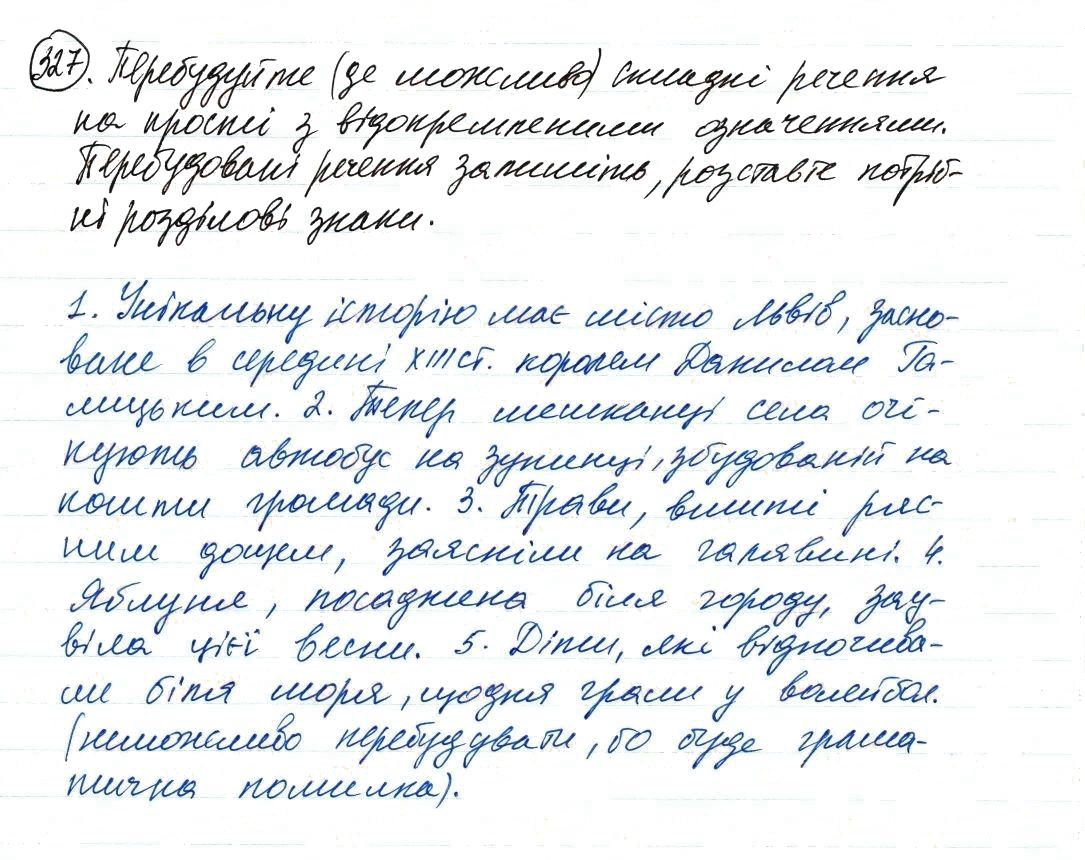 327. Перебудуйте (де можливо) складні речення
на прості з відокремленими означеннями.
Перебудовані речення запишіть, розставте потріб-
ні розділові знаки.
1. Унікальну історію має місто Львів, засно-
ване в середині XIII ст. королем Данилом Га-
лицьким. 2. Тепер мешканці села очі-
кують автобус на зупинці, збудованій на
кошти громади. 3. Трави, вмиті ряс-
ним дощем, заясніли на галявині. 4.
Яблуня, посаджена біля городу, зац-
віла цієї весни. 5. Діти, які відпочива-
ли біля моря, щодня грали у волейбол.
(неможливо перебудувати, бо буде грама-
тична помилка).